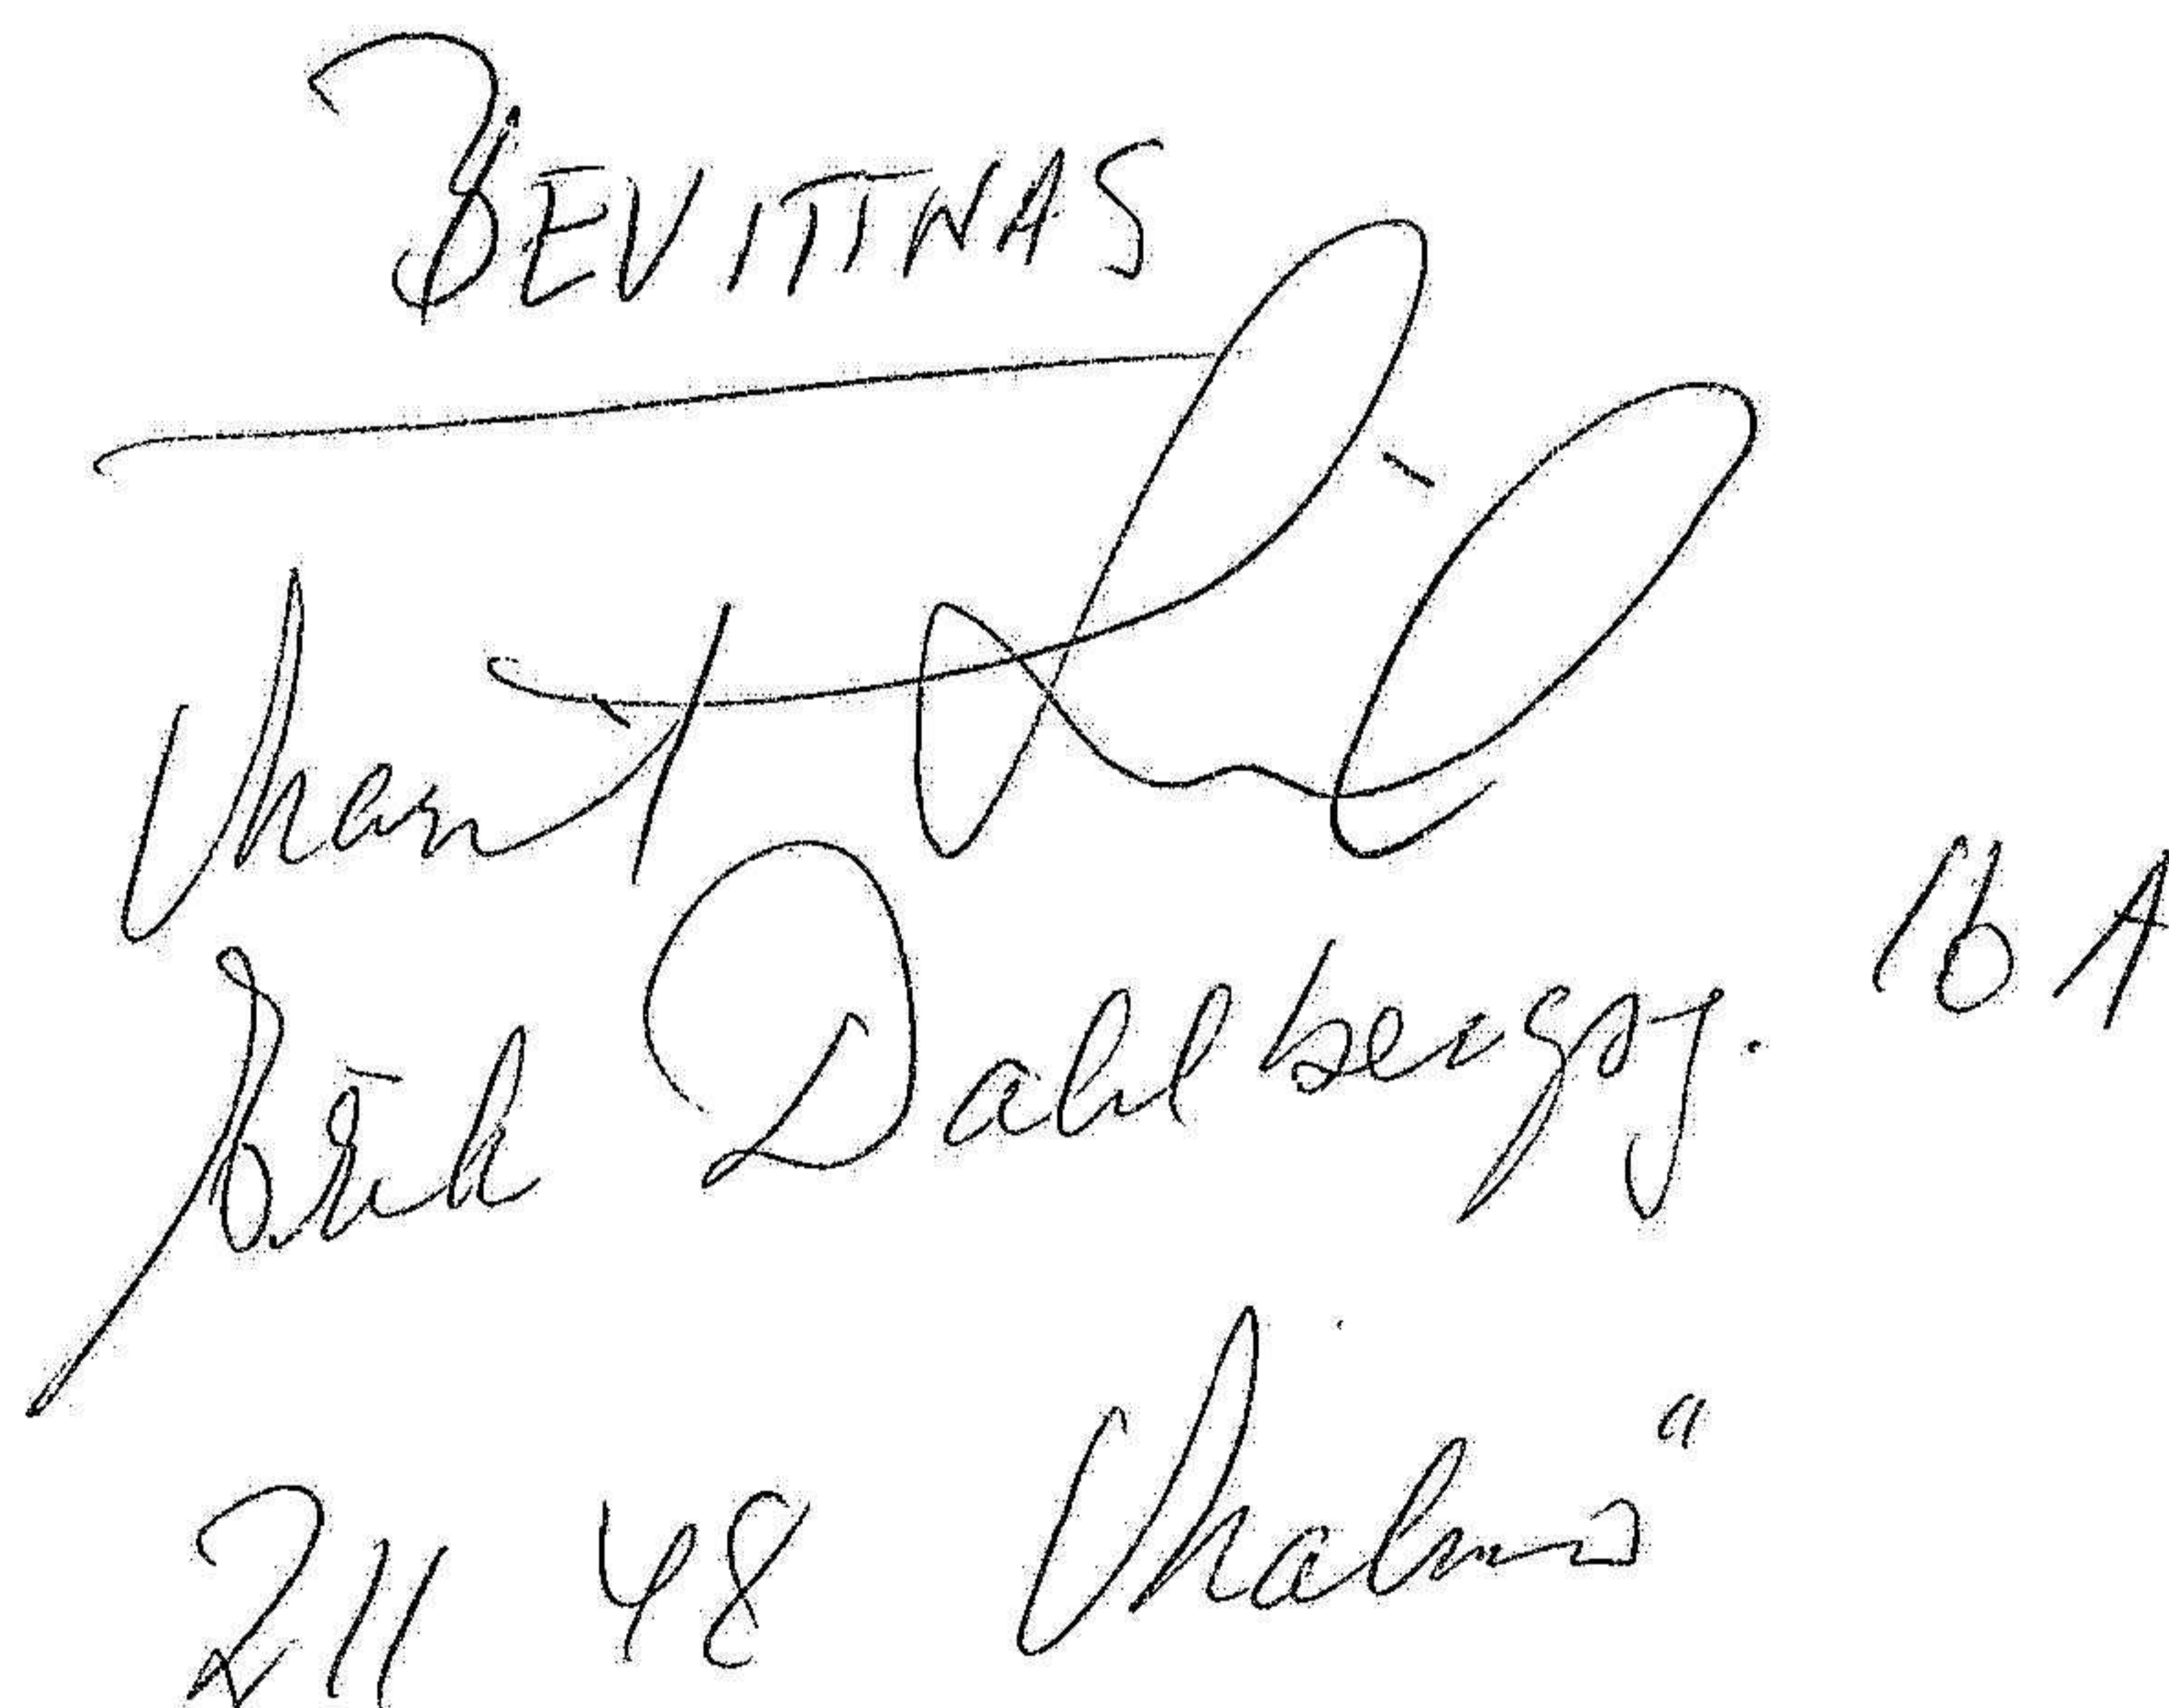 BEVITTNAS
Erik Dahlbergsg. 16 A
211 48 Malmö